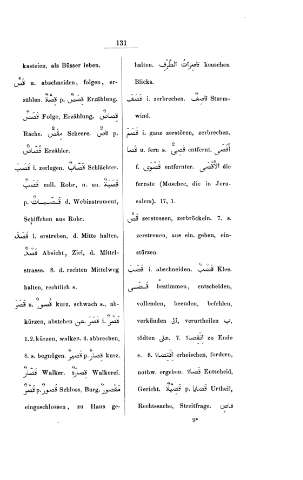 131
kasteien, als Büsser leben.
قصّ u. abschneiden, folgen, er-
zählen. قصّة p. قصص Erzählung.
قصص Folge, Erzählung, قصاص
Rache. مقصّ Scheere. قاصّ p.
قصّاص Erzähler.
قصب i. zerlegen. قصّاب Schlächter.
قصب coll. Rohr, n. un. قصبة
p. قصبات d. Webinstrument,
Schiffchen aus Rohr.
قصد i. erstreben, d. Mitte halten,
قصد Absicht, Ziel, d. Mittel-
strasse. 8. d. rechten Mittelweg
halten, redlich s.
قصر u. kurz, schwach s., ab-
kürzen, abstehen عن. قصر i.
1.2. kürzen, walken. 4. abbrechen,
8. s. begnügen. قصير p. قصار kurz.
قصّار Walker. قصارة Walkerei.
قصر p. قصور Schloss, Burg. مقصور
eingeschlossen, zu Haus ge-
halten. قاصرات الطّرف keuschen
Blicks.
قصف i. zerbrechen. قاصف Sturm-
wind.
قصم i. ganz zerstören, zerbrechen.
قصا u. fern s. قصيّ entfernt. أقصى
f. قصوى entfernter. الأقصى die
fernste (Moschee, die in Jeru-
salem). 17, 1.
قضّ zerstossen, zerbröckeln. 7. s.
zerstreuen, aus ein. gehen, ein-
stürzen.
قضب i. abschneiden. قضب Klee.
قضى bestimmen, entscheiden,
vollenden, beenden, befehlen,
verkünden إلى, verurtheilen ب,
tödten على. 7. انقضى zu Ende
s. 8. اقتضى erheischen, fordern,
nothw. ergeben. قضاء Entscheid,
Gericht. قضيّة p. قضايا Urtheil,
Rechtssache, Streitfrage. قاض
9*